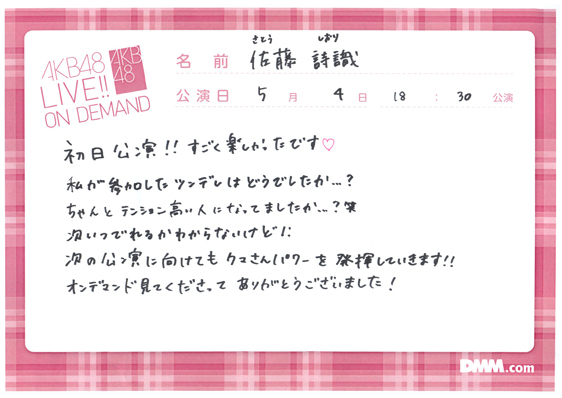 AKB48
LIVE!!
ON DEMAND
AKB
48
さとう しおり
名前 佐藤 詩識
公演日 5月 4日 18:30 公演
初日公演!! すごく楽しかったです♡
私が参加したツンデレはどうでしたか…?
ちゃんとテンション高い人になってましたか…?笑
次いつでれるかわからないけど!!
次の公演に向けてもクマさんパワーを発揮していきます!!
オンデマンド見てくださってありがとうございました!
DMM.com